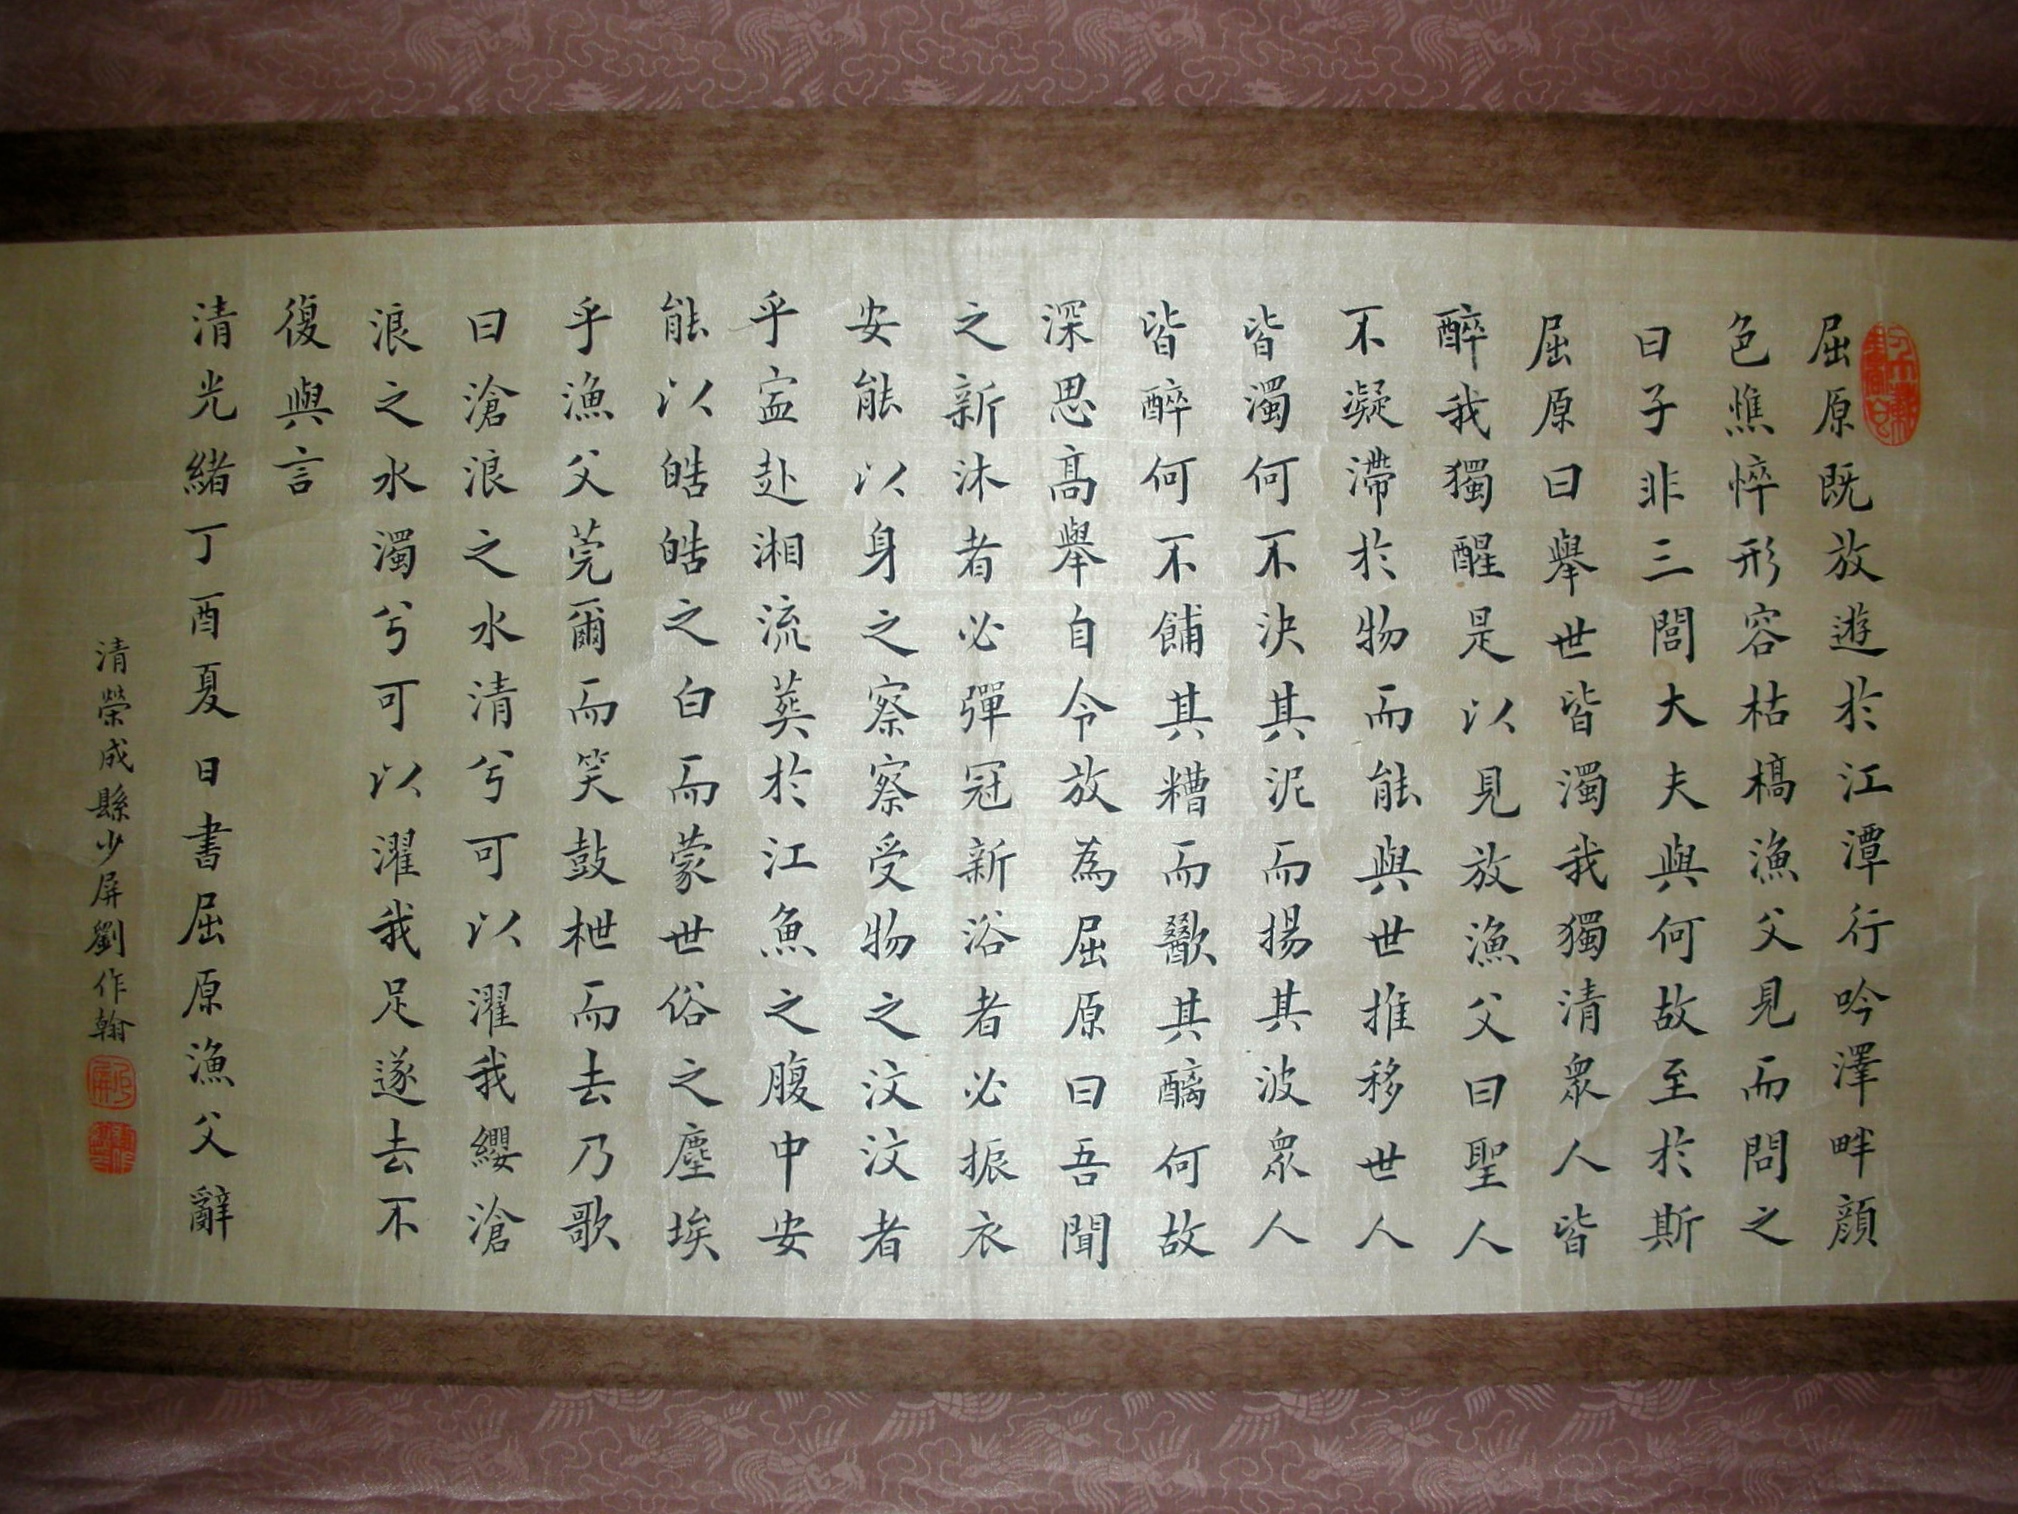 屈原既放遊於江潭行吟澤畔顔
色憔悴形容枯槁漁父見而問之
曰子非三閭大夫與何故至於斯
屈原曰舉世皆濁我獨清衆人皆
醉我獨醒是以見放漁父曰聖人
不凝滯於物而能與世推移世人
皆濁何不決其泥而揚其波衆人
皆醉何不餔其糟而歠其醨何故
深思高舉自令放為屈原曰吾聞
之新沐者必彈冠新浴者必振衣
安能以身之察察受物之汶汶者
乎寍赴湘流葬於江魚之腹中安
能以皓皓之白而蒙世俗之塵埃
乎漁父莞爾而笑鼓枻而去乃歌
曰滄浪之水清兮可以濯我纓滄
浪之水濁兮可以濯我足遂去不
復與言
清光緒丁酉夏日書屈原漁父辭
清榮成縣少屏劉作翰